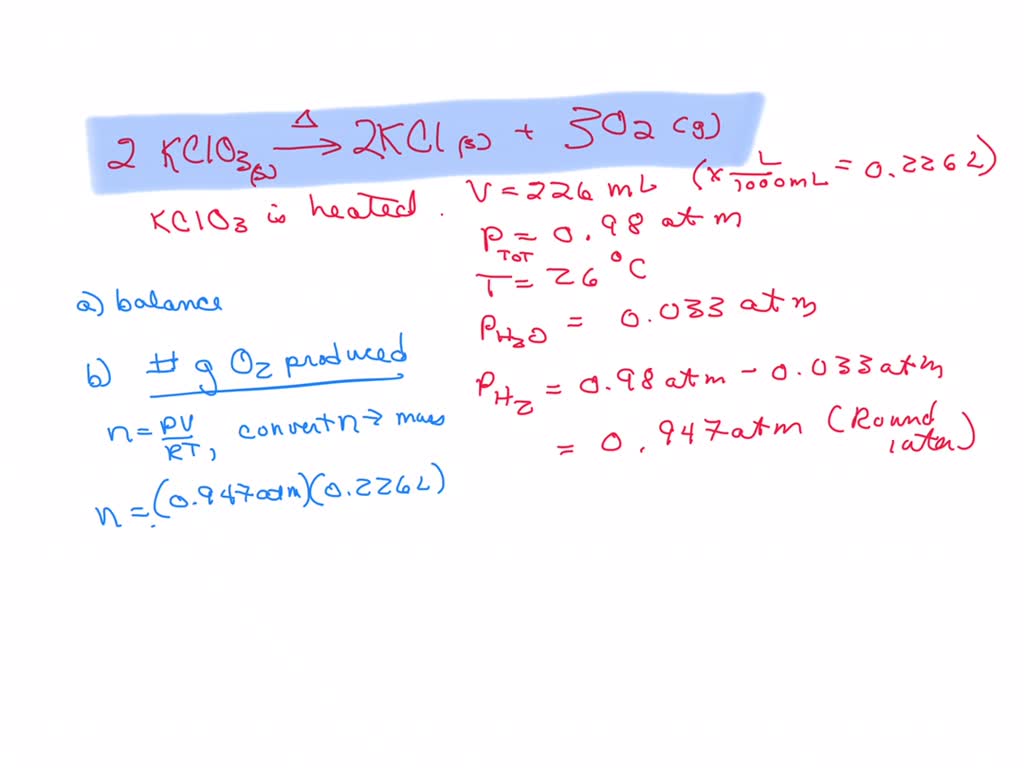 2 KClO3(s) Δ→ 2KCl(s) + 3O2(g)
KClO3 is heated.
V = 226 mL (x L/1000mL = 0.226L)
PTOT = 0.98 atm
T = 26 °C
PH2O = 0.033 atm
PH2 = 0.98 atm - 0.033 atm
= 0.947 atm (Round later)
a) balance
b) # g O2 produced
n = PV/RT, convert n → mass
n = (0.947 atm)(0.226L)